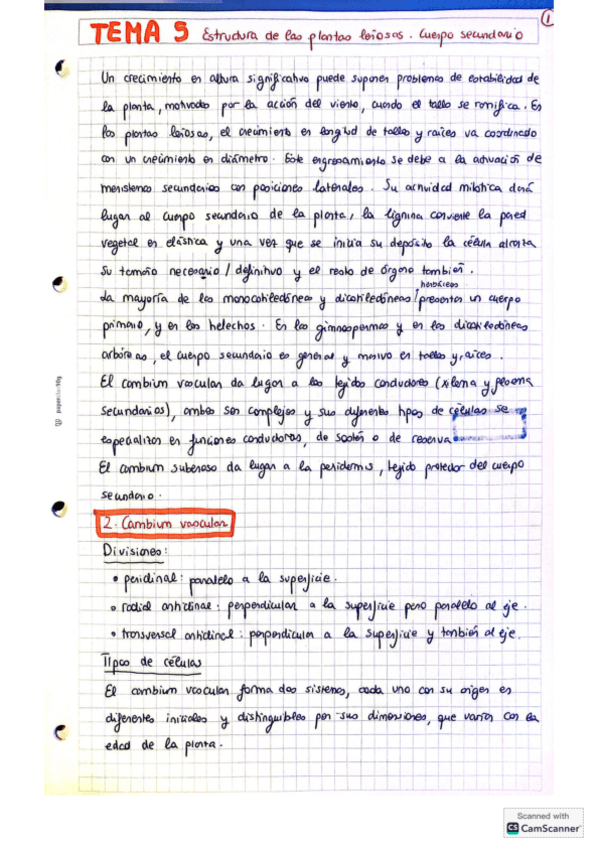 1
TEMA 5 Estructura de las plantas leñosas. Cuerpo secundario
Un crecimiento en altura significativo puede suponer problemas de estabilidad de
la planta, motivados por la acción del viento, cuando el tallo se ramifica. En
las plantas leñosas, el crecimiento en longitud de tallos y raíces va coordinado
con un crecimiento en diámetro. Este engrosamiento se debe a la actuación de
meristemos secundarios con posiciones laterales. Su actividad mitótica dará
lugar al cuerpo secundario de la planta, la lignina convierte la pared
vegetal en elástica y una vez que se inicia su depósito la célula alcanza
su tamaño necesario / definitivo y el resto de órgano también.
herbáceas
La mayoría de las monocotiledóneas y dicotiledóneas / presentan un cuerpo
primario, y en los helechos. En las gimnospermas y en las dicotiledóneas
arbóreas, el cuerpo secundario es general y masivo en tallos y raíces.
El cambium vascular da lugar a los tejidos conductores (xilema y floema
secundarios), ambos son complejos y sus diferentes tipos de células se
especializan en funciones conductoras, de sostén o de reserva
El cambium suberoso da lugar a la peridermis, tejido protector del cuerpo
secundario.
2. Cambium vascular
Divisiones:
• periclinal: paralelo a la superficie.
• radial anticlinal: perpendicular a la superficie pero paralelo al eje.
• transversal anticlinal: perpendicular a la superficie y también al eje.
Tipos de células
El cambium vascular forma dos sistemas, cada uno con su origen en
diferentes iniciales y distinguibles por sus dimensiones, que varían con la
edad de la planta.
Scanned with
CS CamScanner